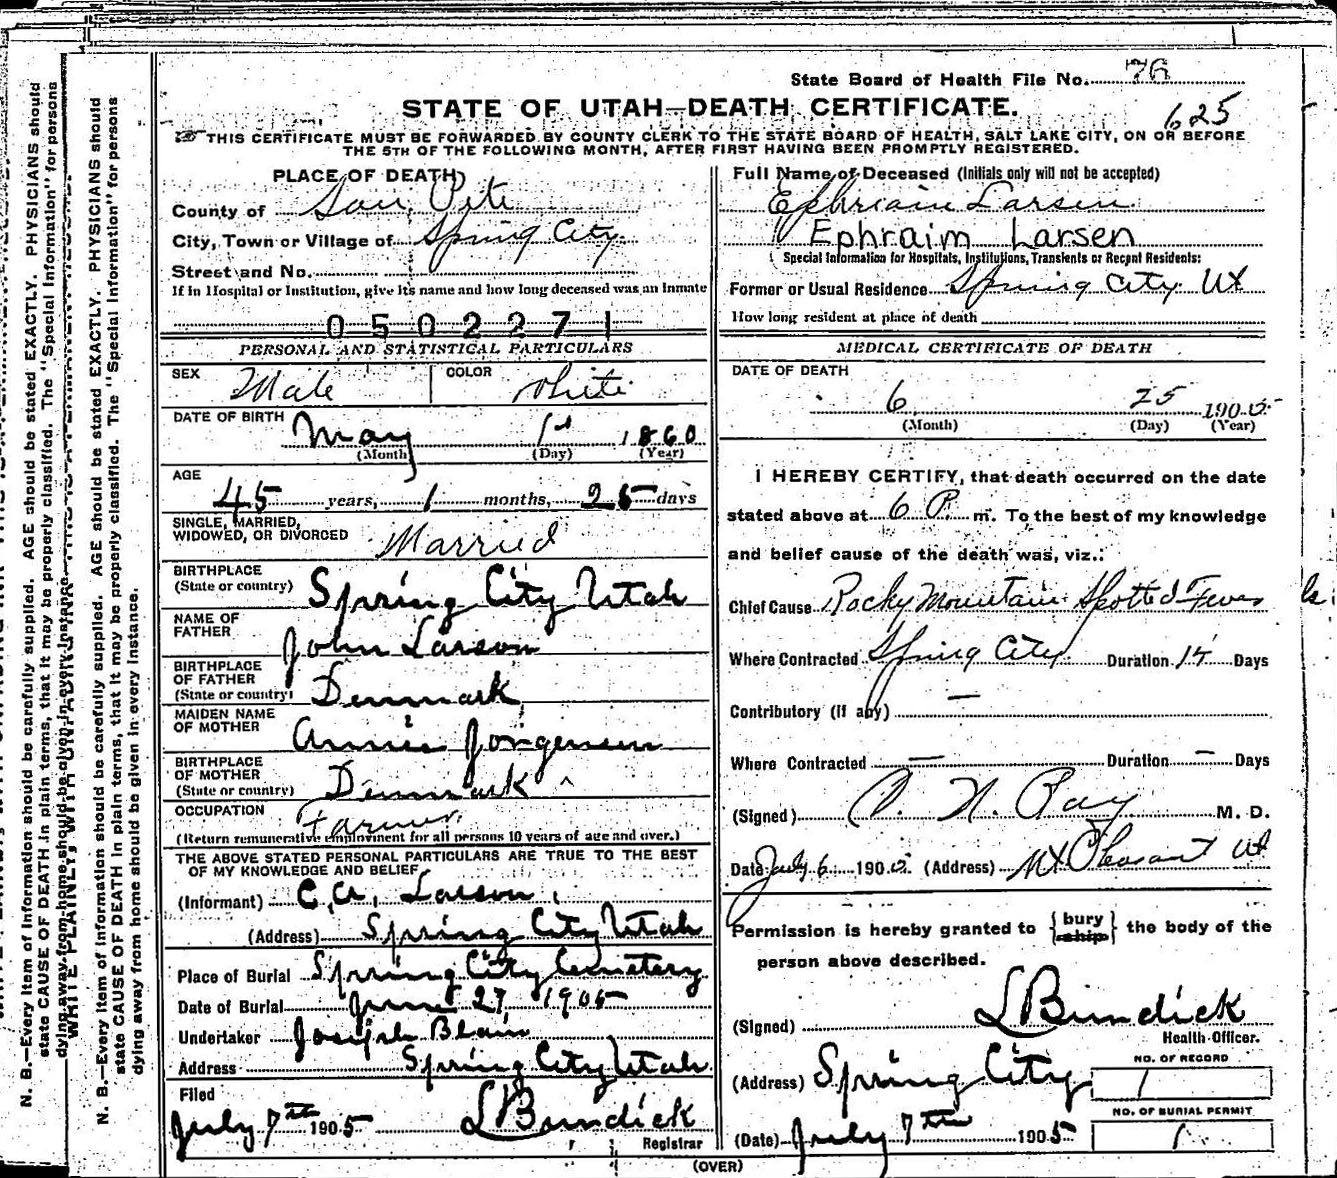 State Board of Health File No. 76
STATE OF UTAH—DEATH CERTIFICATE.
625
THIS CERTIFICATE MUST BE FORWARDED BY COUNTY CLERK TO THE STATE BOARD OF HEALTH, SALT LAKE CITY, ON OR BEFORE
THE 5TH OF THE FOLLOWING MONTH, AFTER FIRST HAVING BEEN PROMPTLY REGISTERED.
PLACE OF DEATH
County of San Pete
City, Town or Village of Spring City
Street and No.
If in Hospital or Institution, give its name and how long deceased was an Inmate
0502271
PERSONAL AND STATISTICAL PARTICULARS
SEX Male COLOR White
DATE OF BIRTH May 1st 1860
(Month) (Day) (Year)
AGE
45 years, 1 months, 25 days
SINGLE, MARRIED,
WIDOWED, OR DIVORCED Married
BIRTHPLACE
(State or country) Spring City Utah
NAME OF
FATHER John Larson
BIRTHPLACE
OF FATHER
(State or country) Denmark
MAIDEN NAME
OF MOTHER Annie Jorgensen
BIRTHPLACE
OF MOTHER
(State or country) Denmark
OCCUPATION Farmer
(Return remunerative employment for all persons 10 years of age and over.)
THE ABOVE STATED PERSONAL PARTICULARS ARE TRUE TO THE BEST
OF MY KNOWLEDGE AND BELIEF
(Informant) C. A. Larson
(Address) Spring City Utah
Place of Burial Spring City Cemetery
Date of Burial June 27 1905
Undertaker Joseph Blain
Address Spring City Utah
Filed
July 7th 1905 L Bundick
Registrar
Full Name of Deceased (Initials only will not be accepted)
Ephriam Larsen
Ephraim Larsen
Special Information for Hospitals, Institutions, Transients or Recent Residents:
Former or Usual Residence Spring City Ut
How long resident at place of death
MEDICAL CERTIFICATE OF DEATH
DATE OF DEATH
6 25 1905
(Month) (Day) (Year)
I HEREBY CERTIFY, that death occurred on the date
stated above at 6 P. m. To the best of my knowledge
and belief cause of the death was, viz.:
Chief Cause Rocky Mountain Spotted Fever
Where Contracted Spring City Duration 14 Days
Contributory (If any) —
Where Contracted — Duration — Days
(Signed) N. Ray M. D.
Date July 6 1905 (Address) Mt Pleasant Ut
Permission is hereby granted to {bury ship} the body of the
person above described.
(Signed) L Bundick
Health Officer.
(Address) Spring City
NO. OF RECORD
1
NO. OF BURIAL PERMIT
1
(Date) July 7th 1905
(OVER)
N. B.—Every item of information should be carefully supplied. AGE should be stated EXACTLY. PHYSICIANS should
state CAUSE OF DEATH in plain terms, that it may be properly classified. The "Special Information" for persons
dying away from home should be given in every instance.
WRITE PLAINLY, WITH UNFADING INK
N. B.—Every item of information should be carefully supplied. AGE should be stated EXACTLY. PHYSICIANS should
state CAUSE OF DEATH in plain terms, that it may be properly classified. The "Special Information" for persons
dying away from home should be given in every instance.